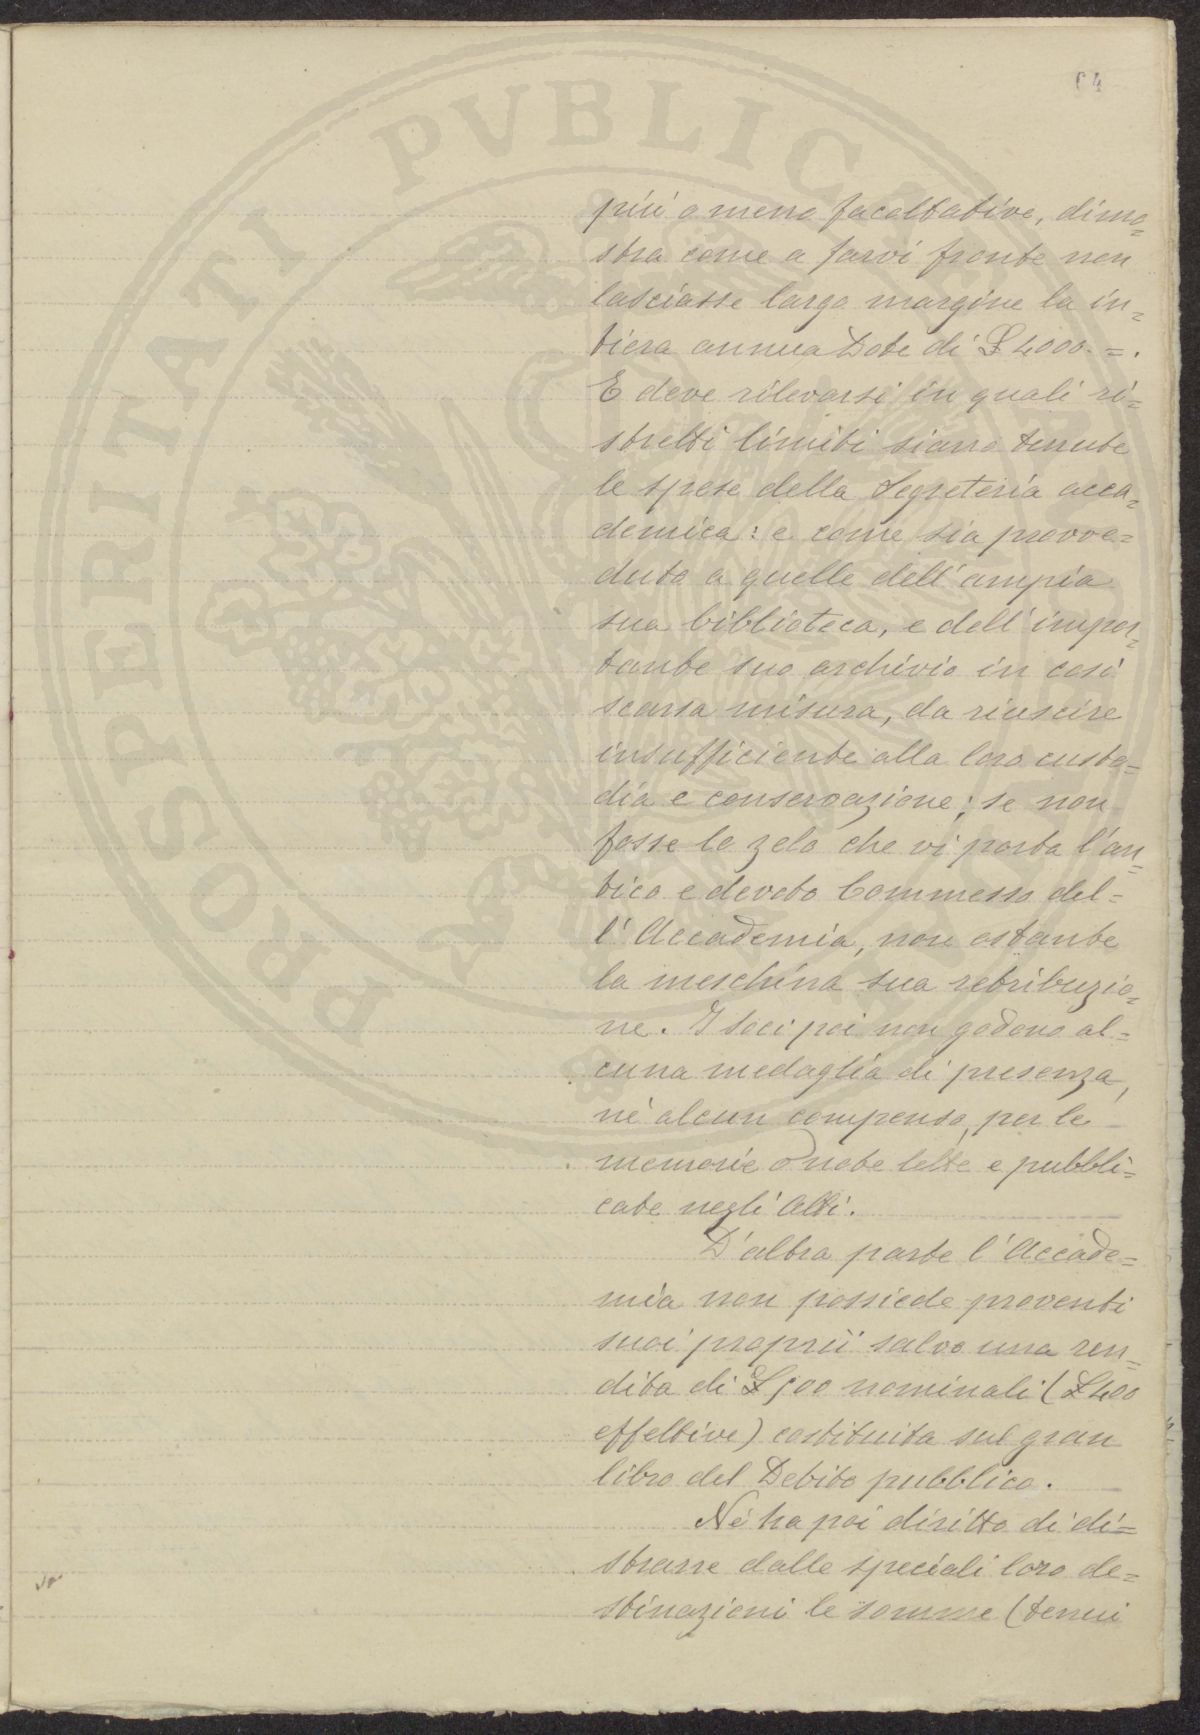 64
PROSPERITATI PVBLICAE
più o meno facoltative, dimo=
stra come a farvi fronte non
lasciasse largo margine la in=
tiera annua Dote di £ 4000. =.
E deve rilevarsi in quali ri=
stretti limiti siano tenute
le spese della Segreteria acca=
demica: e come sia provve=
duto a quelle dell'ampia
sua biblioteca, e dell'impor=
tante suo archivio in così
scarsa misura, da riuscire
insufficiente alla loro custo=
dia e conservazione; se non
fosse lo zelo che vi porta l'an=
tico e devoto Commesso del=
l'Accademia, non ostante
la meschina sua retribuzio=
ne. I soci poi non godono al=
cuna medaglia di presenza,
nè alcun compenso, per le
memorie o note lette e pubbli=
cate negli Atti.
D'altra parte l'Accade=
mia non possiede proventi
suoi proprii salvo una ren=
dita di £ 500 nominali (£ 400
effettive) costituita sul gran
libro del Debito pubblico.
Nè ha poi diritto di di=
strarre dalle speciali loro de=
stinazioni le somme (tenui